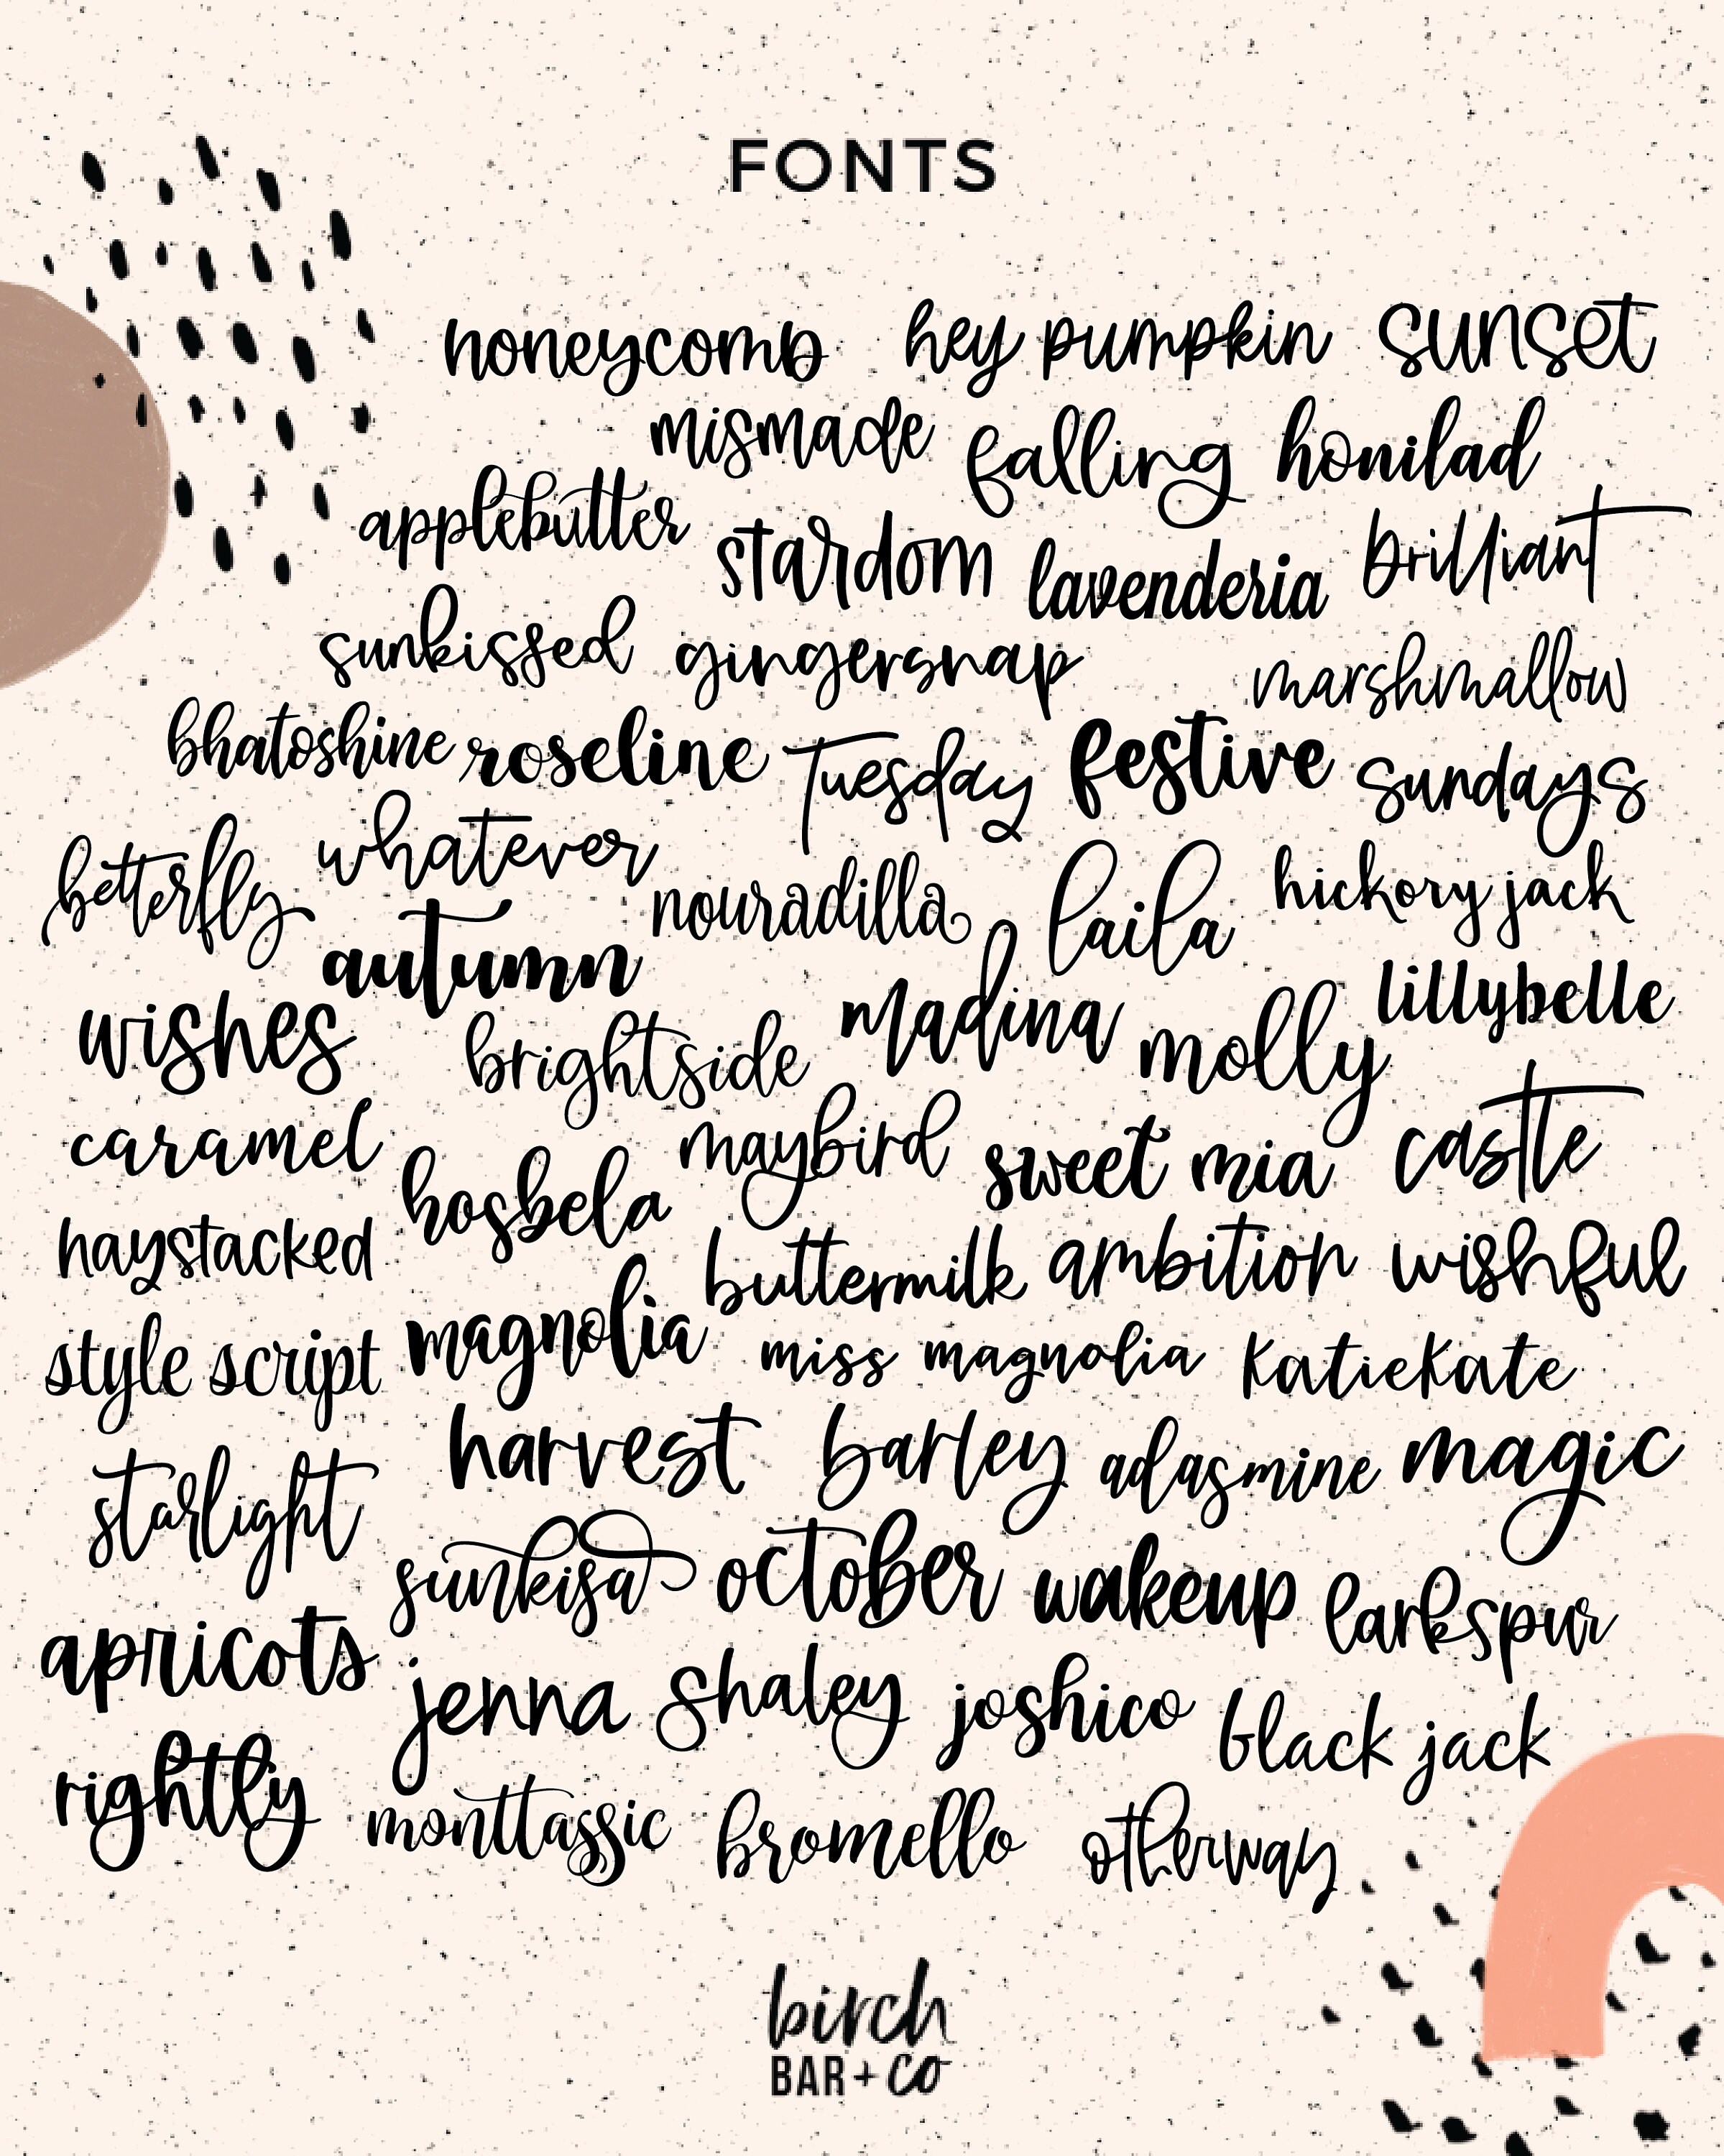 FONTS
honeycomb hey pumpkin sunset
mismade falling honilad
applebutter stardom lavenderia brilliant
sunkissed gingersnap marshmallow
bhatoshine roseline Tuesday festive sundays
betterfly whatever nouradilla laila hickory jack
autumn madina molly lillybelle
wishes brightside
caramel hosbela maybird sweet mia castle
haystacked buttermilk ambition wishful
style script magnolia miss magnolia KatieKate
starlight harvest barley adasmine magic
sunkisa october wakeup larkspur
apricots jenna shaley joshico black jack
rightly monttassic bromello otherway
birch
BAR + CO